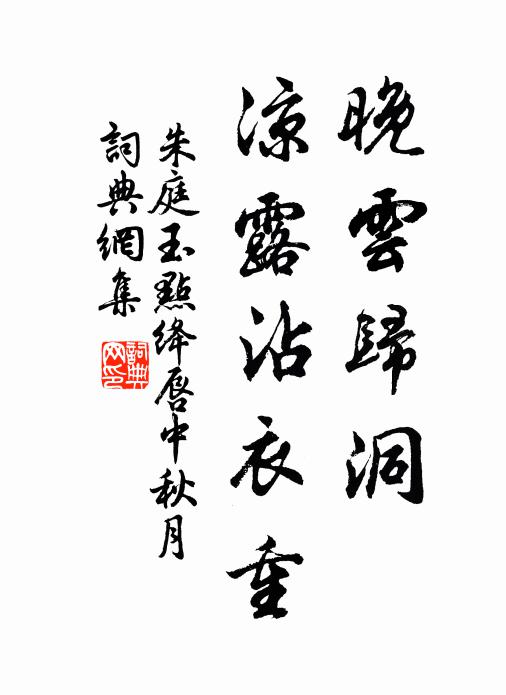 晚雲歸洞
涼露沾衣重
朱庭玉點絳唇中秋月
詞典網集
詞典网印